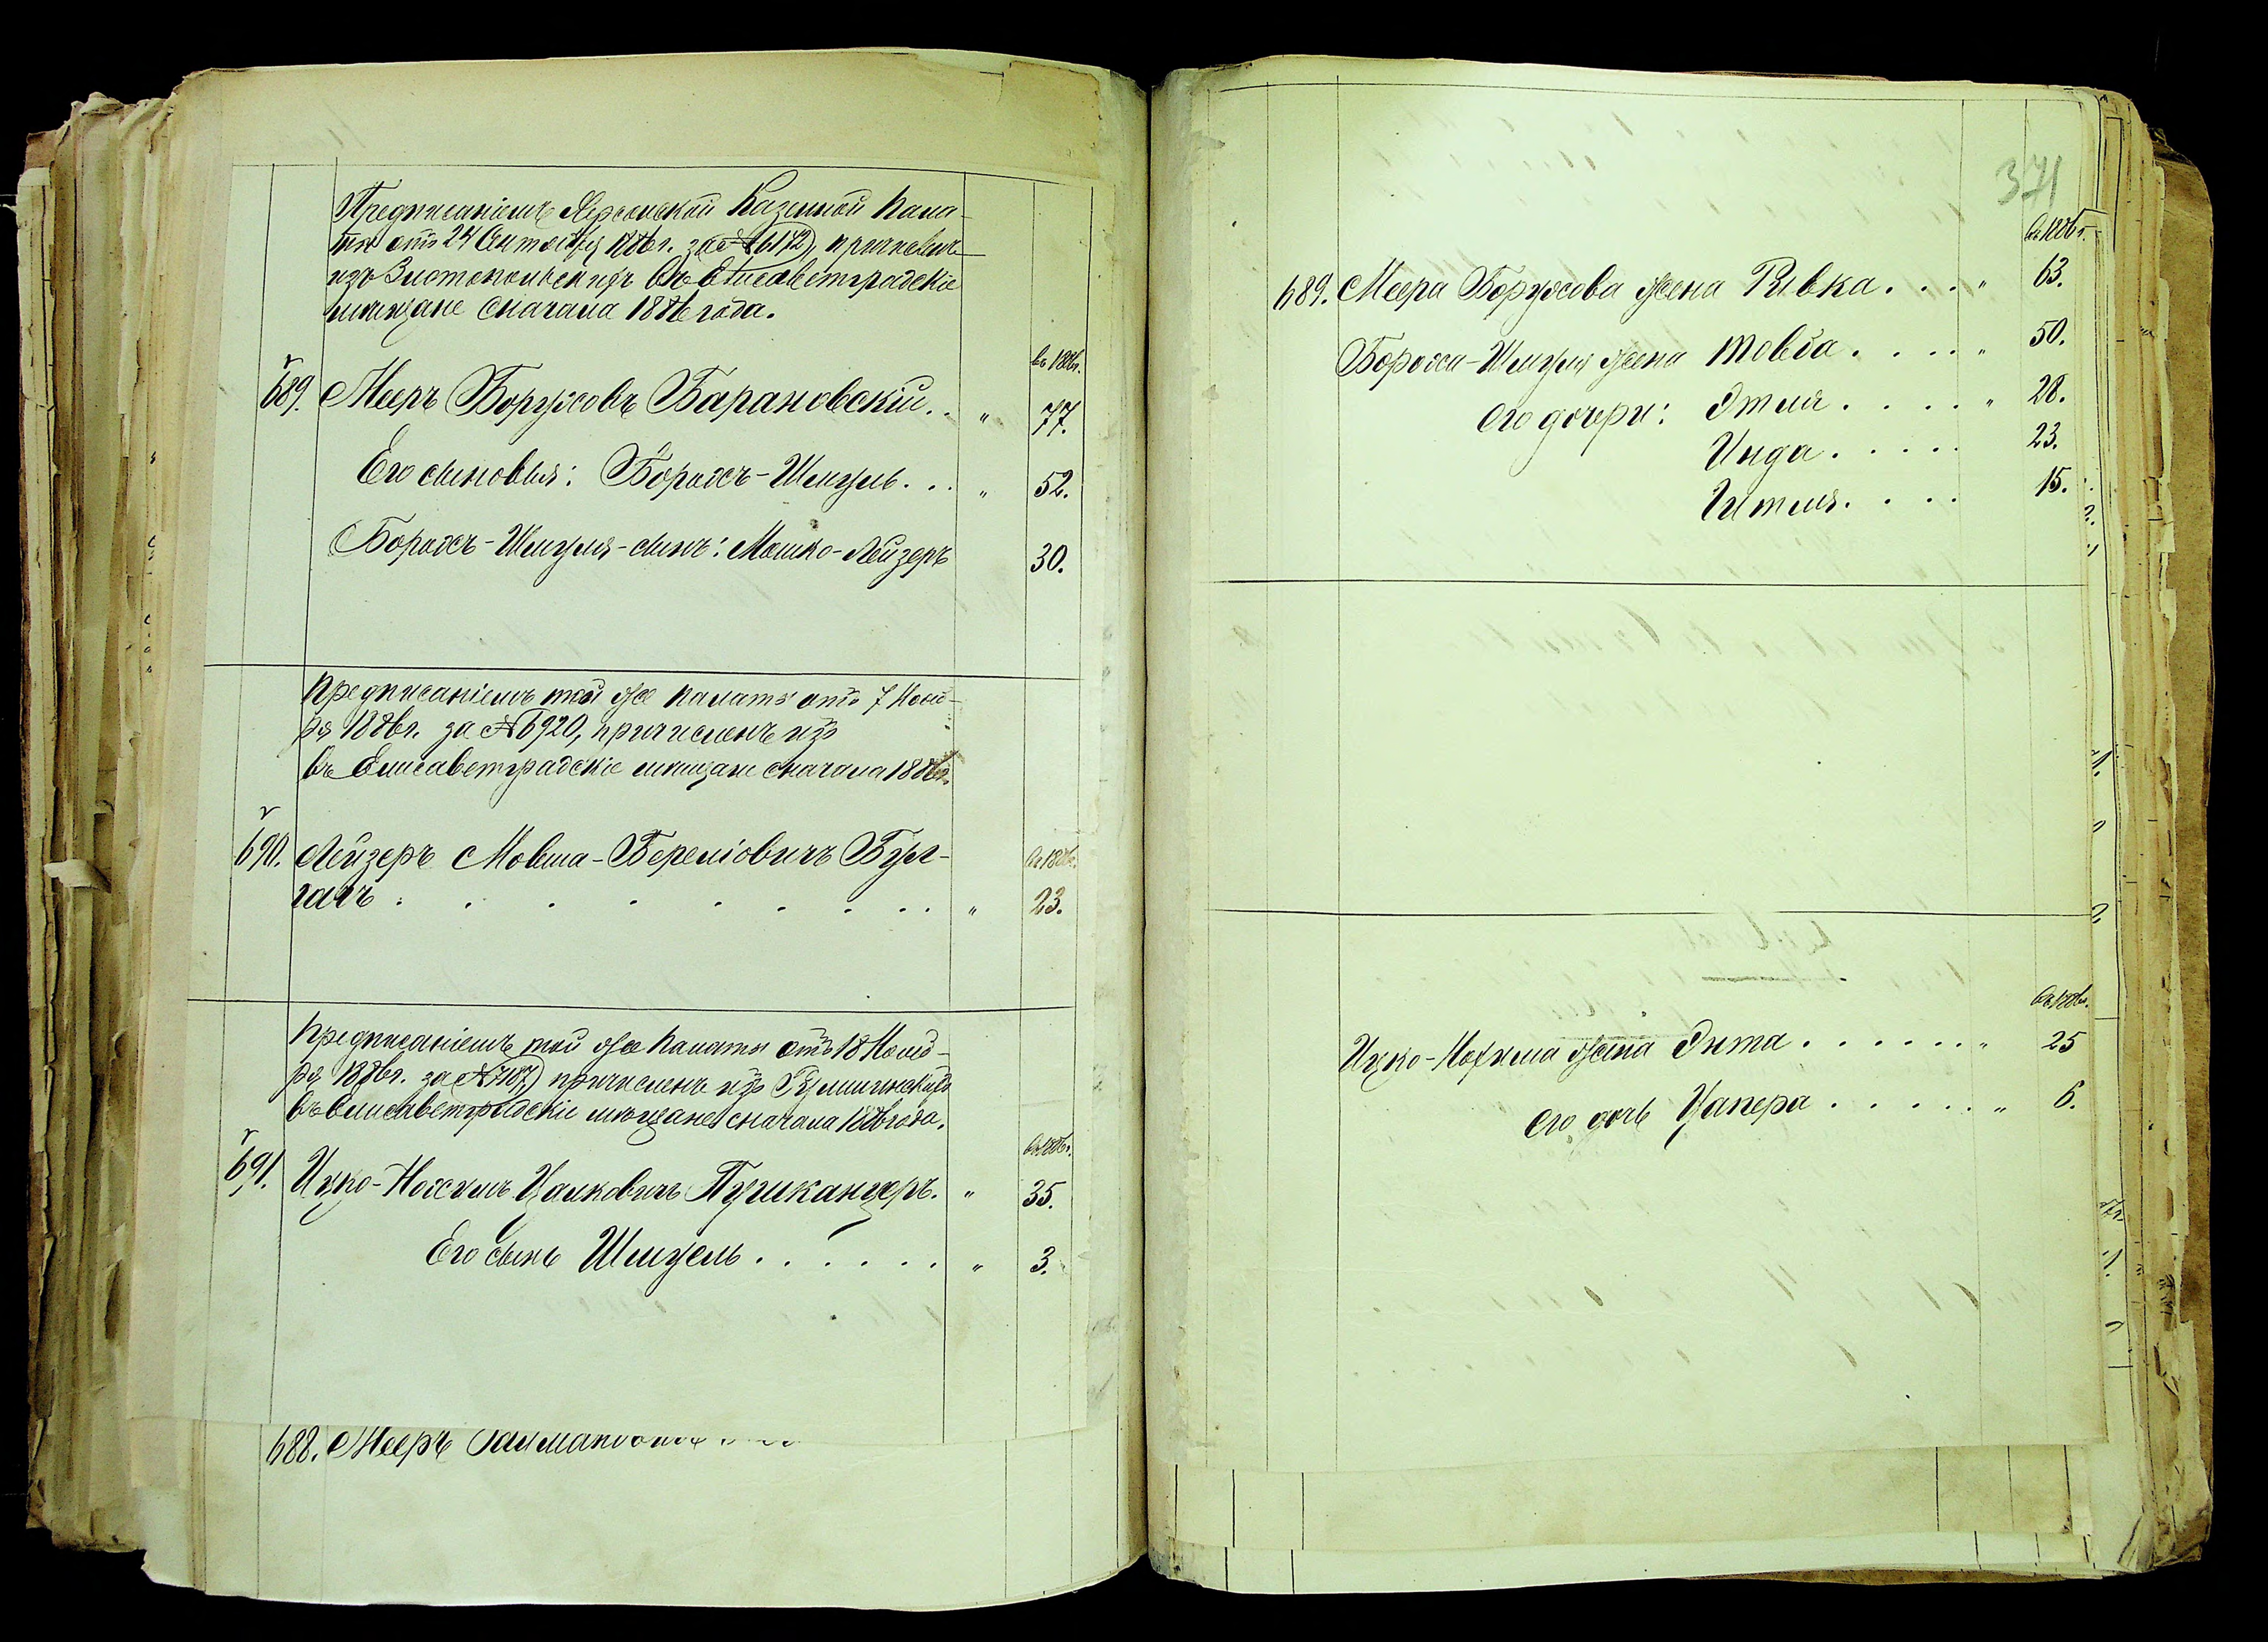 Предписаніемъ Херсонской Казенной Пала-
ты отъ 24 Сентября 1886г. за №6172, причисленъ
изъ Златопольскихъ въ Елисаветградскіе
мѣщане сначала 1886 года.
въ 1886г.
689. Мееръ Боруховъ Барановскій . . " 77.
Его сыновья: Борохъ-Шмуль . . . " 52.
Борохъ-Шмуля-сынъ: Мошко-Лейзеръ 30.
Предписаніемъ той же Палаты отъ 7 Нояб-
ря 1886г. за №6920, причисленъ изъ
въ Елисаветградскіе мѣщане сначала 1886г.
690. Лейзеръ Мовша-Берелiовичъ Бул-
въ 1886г.
гачъ . . . . . . . . . " 23.
Предписаніемъ той же Палаты отъ 18 Нояб-
ря 1886г. за №7187, причисленъ изъ
въ Елисаветградскіе мѣщане сначала 1886 года.
въ 1886г.
691. Ицко-Нохумъ Цалковичъ Пушканцеръ. " 35.
Его сынъ Шмуель . . . . . . " 3.
688. Мееръ
371
въ 1886г.
689. Меера Борухова жена Ривка . . . " 63.
Бороха-Шмуля жена Товба . . . . " 50.
его дочери: Этля . . . . " 28.
Инда . . . . . 23.
Гитля . . . . 15.
въ 1886г.
Ицко-Нохума жена Энта . . . . . . . " 25
его дочь Цапера . . . . . " 6.